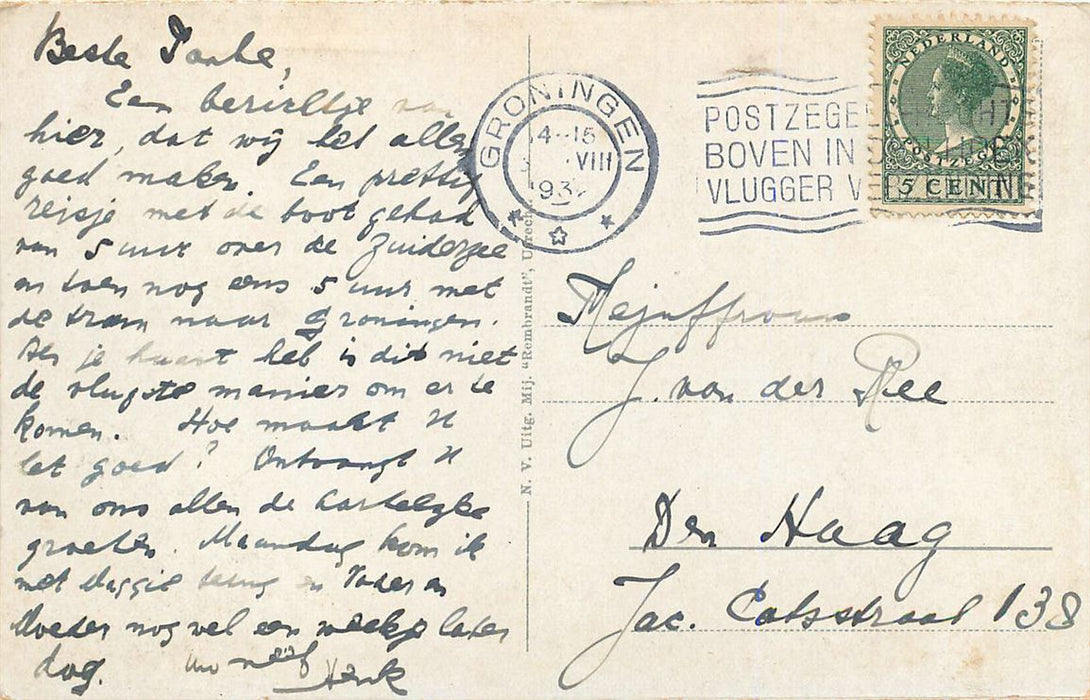 Beste Tante,
Een berichtje van
hier, dat wij het allen
goed maken. Een prettig
reisje met de boot gehad
van 5 uur over de Zuiderzee
en toen nog eens 5 uur met
de tram naar Groningen.
Als je haast heb is dit niet
de vlugste manier om er te
komen. Hoe maakt U
het goed? Ontvangt U
van ons allen de hartelijke
groeten. Maandag kom ik
met terug en Vader en
Moeder nog wel een weekje later
dag. uw neef Henk
N. V. Uitg. Mij. "Rembrandt", Utrecht
GRONINGEN
4-15
VIII
193
POSTZEGE
BOVEN IN
VLUGGER V
NEDERLAND
POSTZEGEL
5 CENT
Mejuffrouw
J. van der Ree
Den Haag
Jac. Catsstraat 138